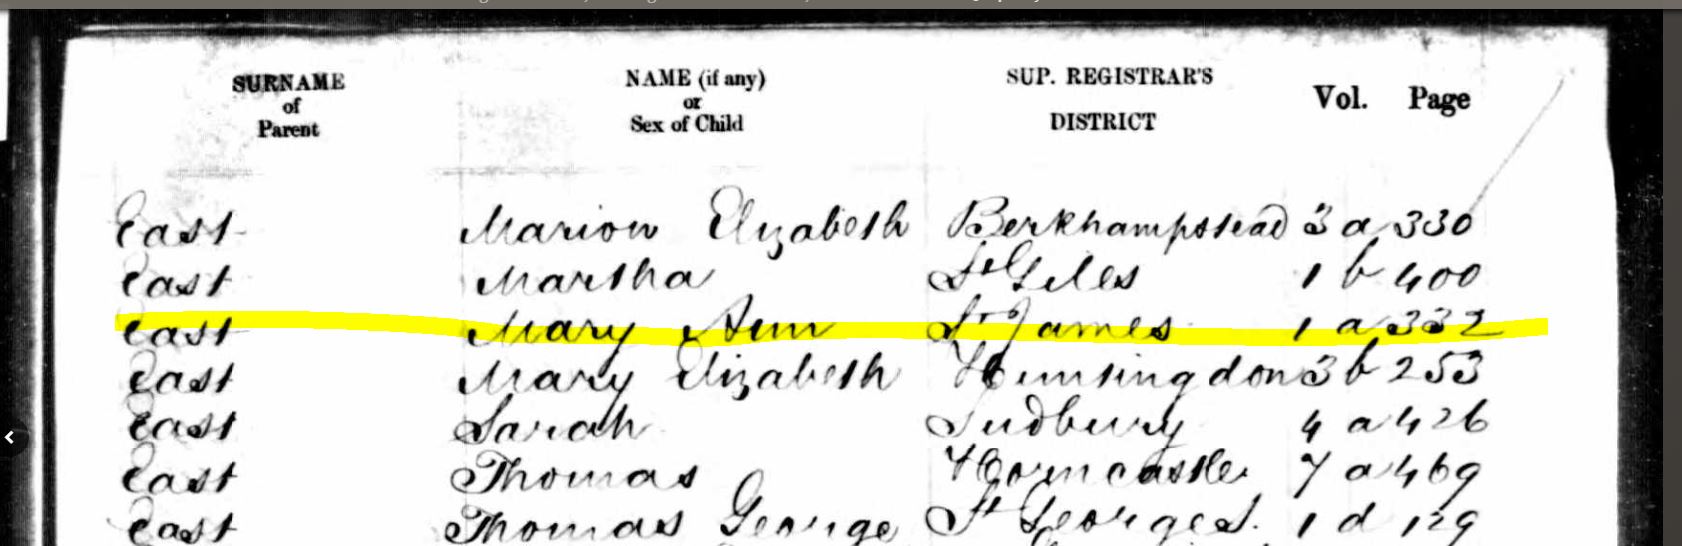 SURNAME of Parent NAME (if any) or Sex of Child SUP. REGISTRAR'S DISTRICT Vol. Page
East Marion Elizabeth Berkhampstead 3 a 330
East Martha St Giles 1 b 400
East Mary Ann St James 1 a 332
East Mary Elizabeth Huntingdon 3 b 253
East Sarah Sudbury 4 a 426
East Thomas Horncastle 7 a 469
East Thomas George St Georges. 1 d 129